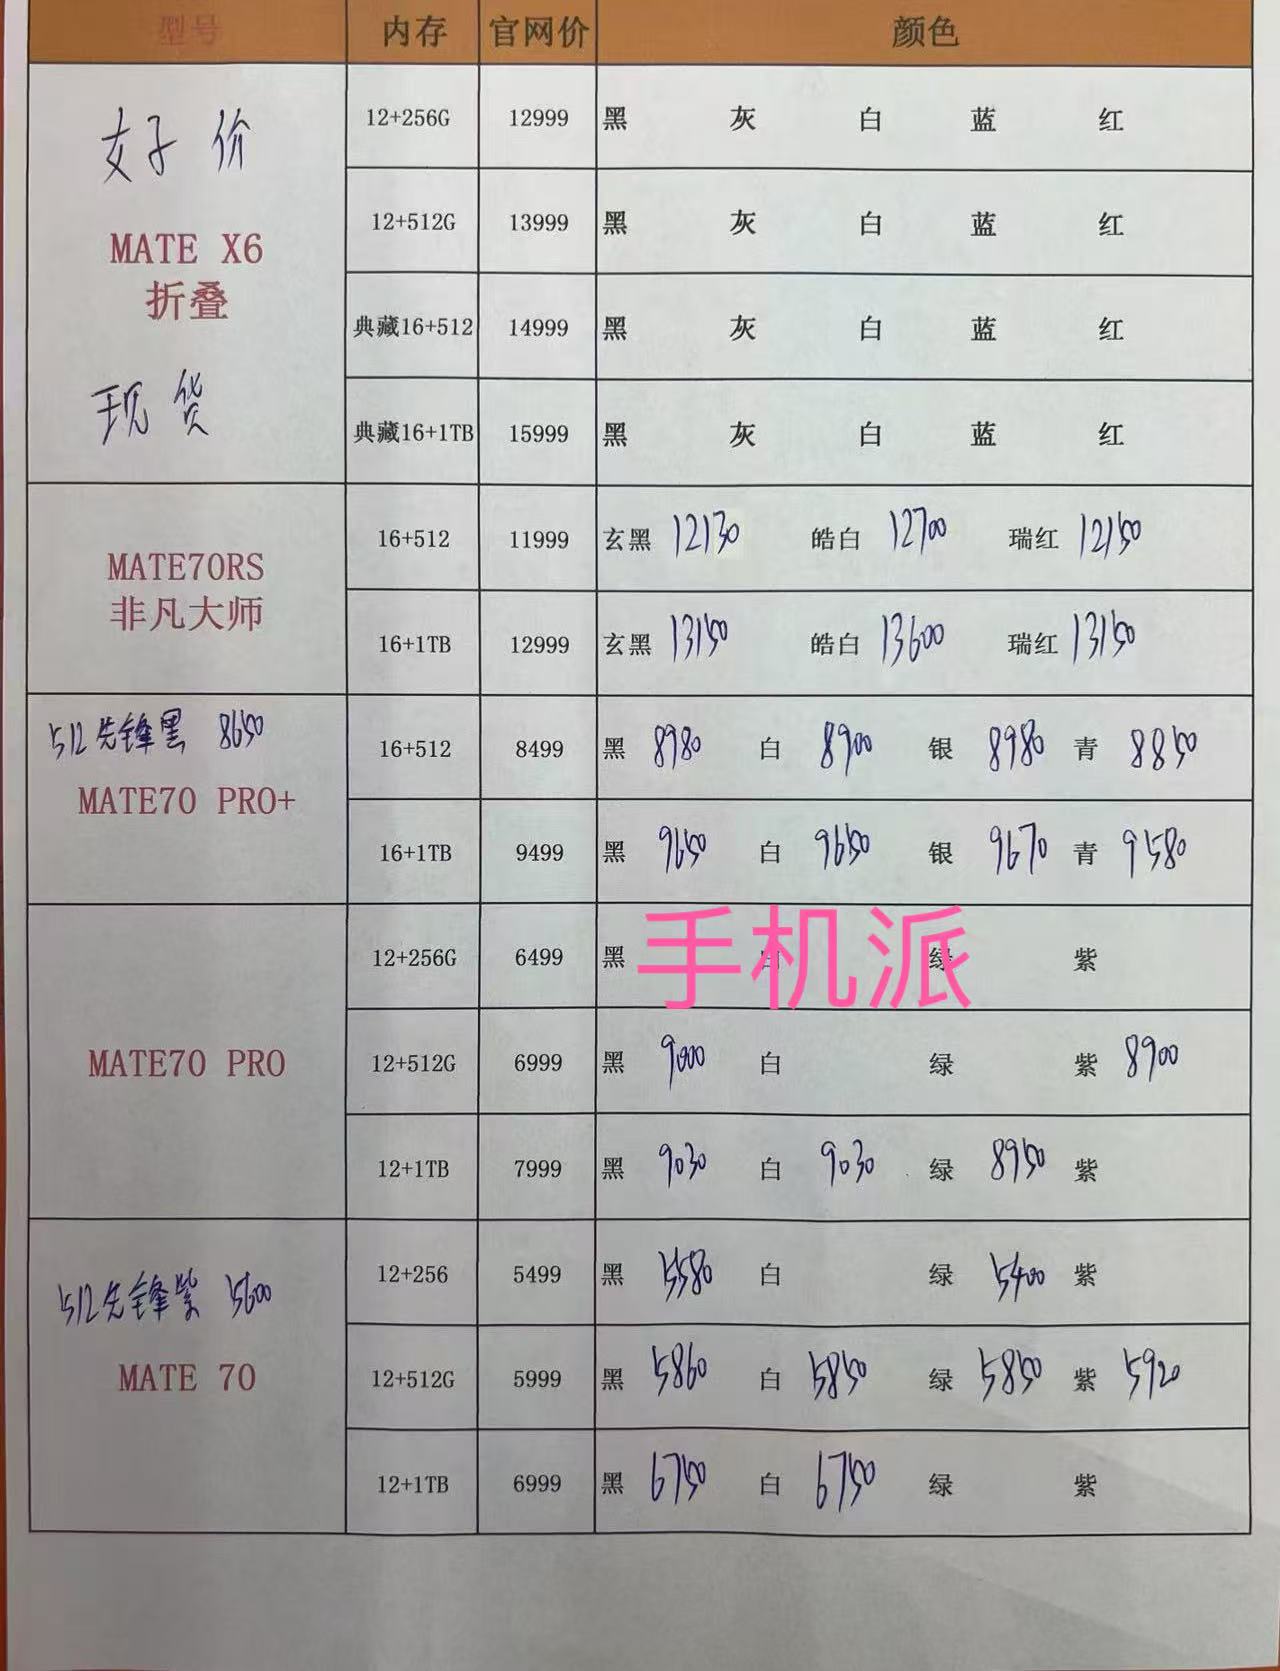 型号 内存 官网价 颜色
好价
MATE X6
折叠
现货
12+256G 12999 黑 灰 白 蓝 红
12+512G 13999 黑 灰 白 蓝 红
典藏16+512 14999 黑 灰 白 蓝 红
典藏16+1TB 15999 黑 灰 白 蓝 红
MATE70RS
非凡大师
16+512 11999 玄黑 12130 皓白 12700 瑞红 12150
16+1TB 12999 玄黑 13150 皓白 13600 瑞红 13150
512先锋黑 8650
MATE70 PRO+
16+512 8499 黑 8980 白 8900 银 8980 青 8850
16+1TB 9499 黑 9650 白 9650 银 9670 青 9580
手机派
MATE70 PRO
12+256G 6499 黑 白 绿 紫
12+512G 6999 黑 9000 白 绿 紫 8900
12+1TB 7999 黑 9030 白 9030 绿 8950 紫
512先锋紫 5600
MATE 70
12+256 5499 黑 5580 白 绿 5400 紫
12+512G 5999 黑 5860 白 5850 绿 5850 紫 5920
12+1TB 6999 黑 6750 白 6750 绿 紫